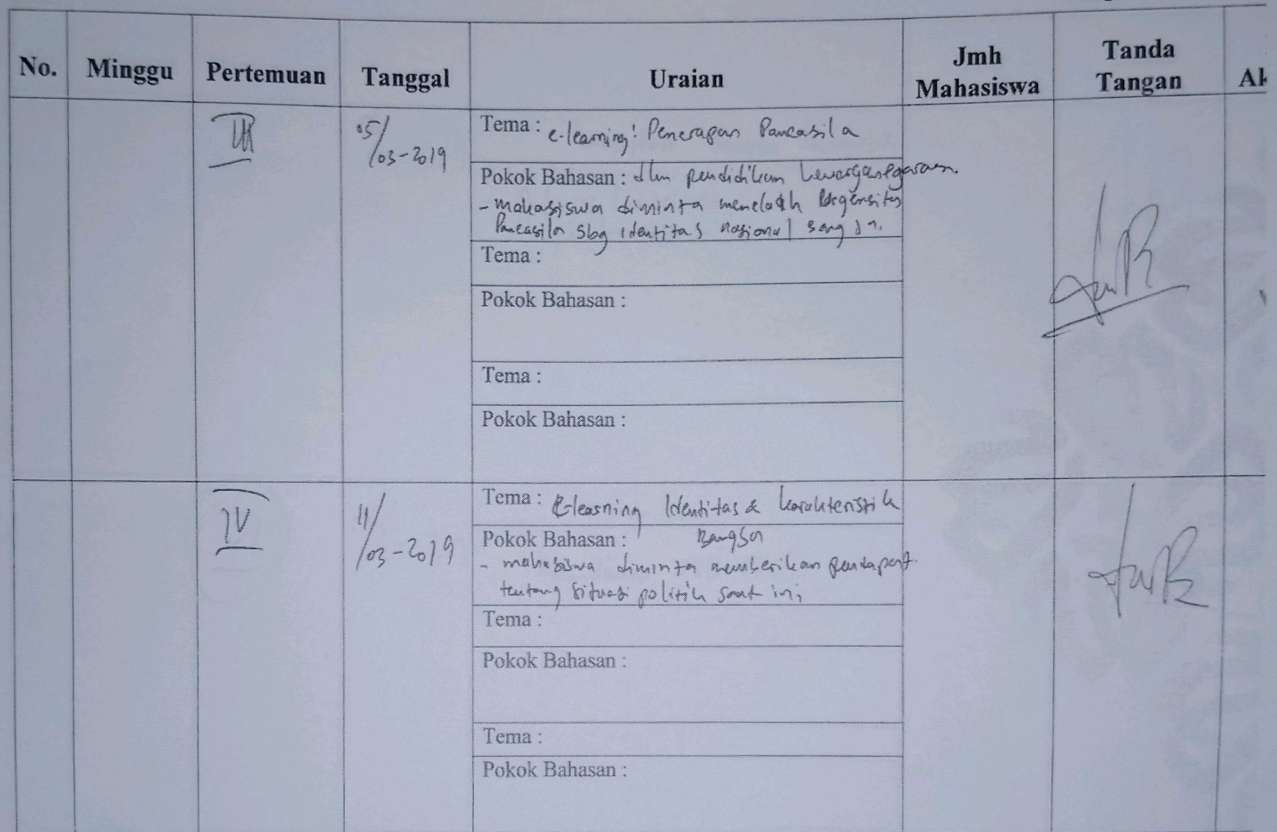 No. Minggu Pertemuan Tanggal Uraian Jmh Mahasiswa Tanda Tangan
III 05/03-2019
Tema : e-learning: Penerapan Pancasila
Pokok Bahasan : dlm pendidikan kewarganegaraan.
- mahasiswa diminta menelaah
Pancasila sbg identitas nasional
Tema :
Pokok Bahasan :
Tema :
Pokok Bahasan :
IV 11/03-2019
Tema : E-learning Identitas & karakteristik
Pokok Bahasan : Bangsa
- mahasiswa diminta memberikan pendapat
tentang situasi politik saat ini
Tema :
Pokok Bahasan :
Tema :
Pokok Bahasan :